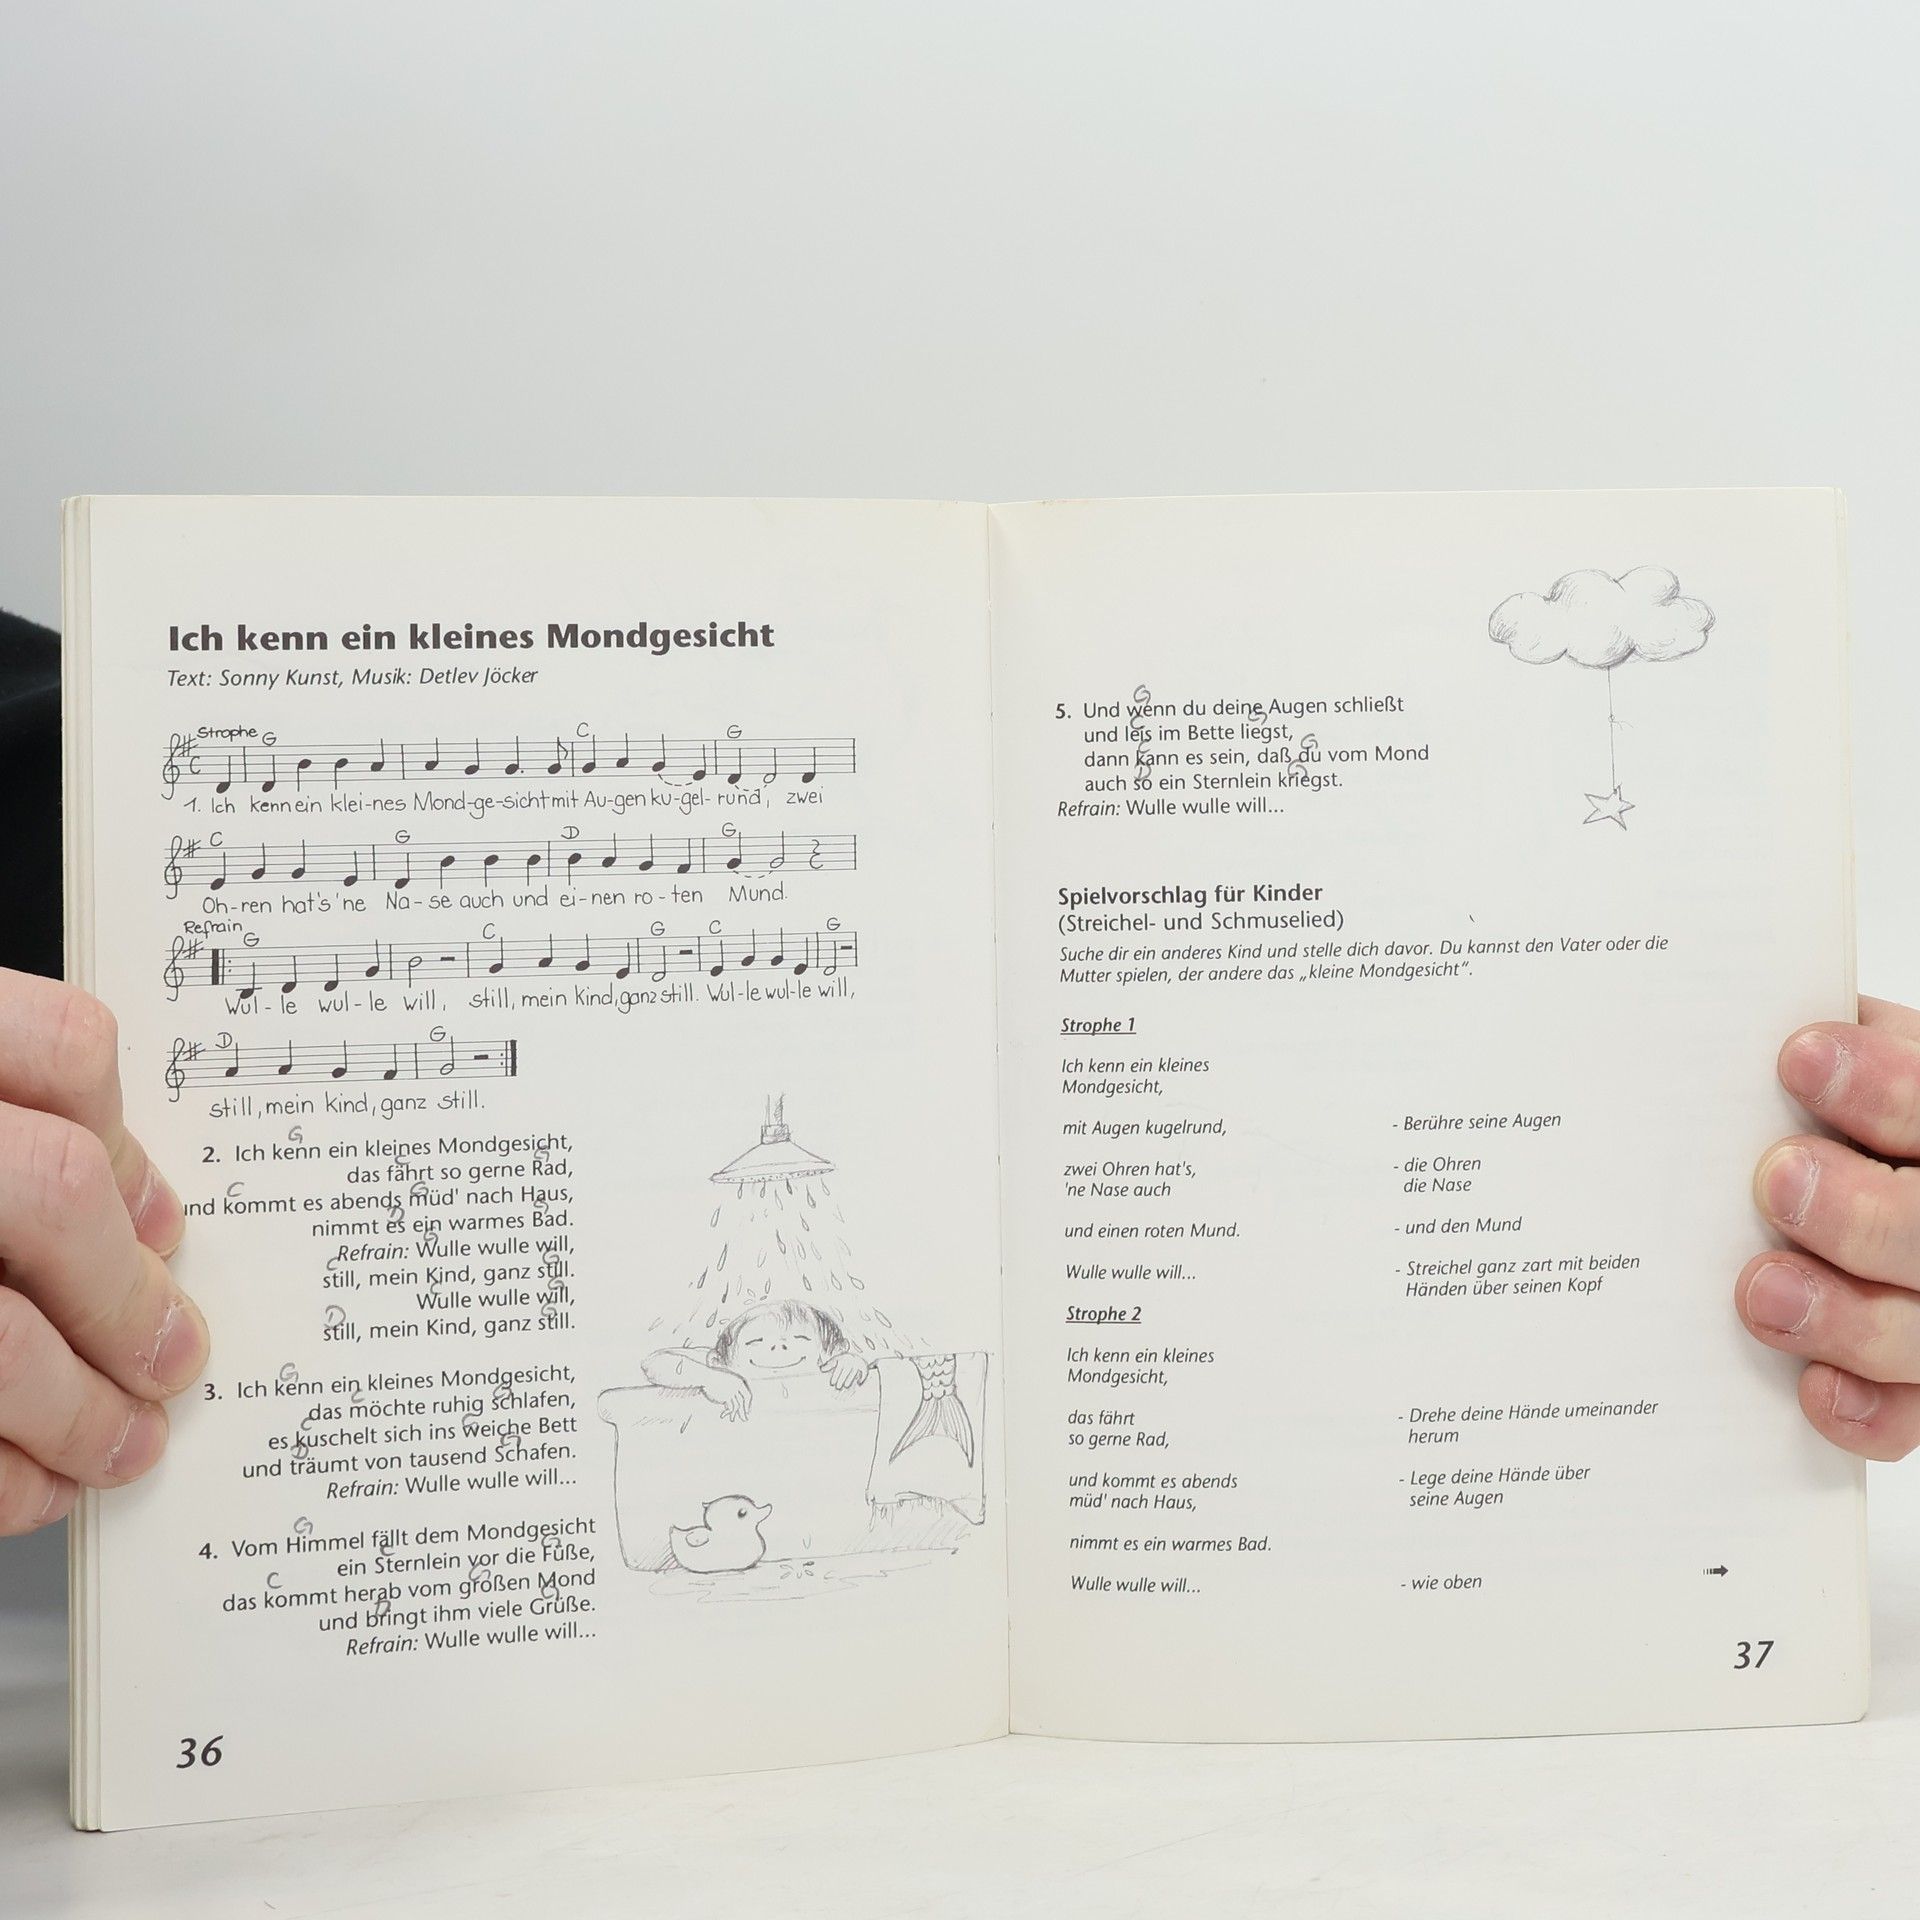 Ich kenn ein kleines Mondgesicht
Text: Sonny Kunst, Musik: Detlev Jöcker
Strophe G C G
1. Ich kenn ein klei-nes Mond-ge-sicht mit Au-gen ku-gel-rund, zwei
C G D G
Oh-ren hat's 'ne Na-se auch und ei-nen ro-ten Mund.
Refrain
G C G C G
Wul-le wul-le will, still, mein Kind, ganz still. Wul-le wul-le will,
D G
still, mein Kind, ganz still.
2. Ich kenn ein kleines Mondgesicht,
das fährt so gerne Rad,
und kommt es abends müd' nach Haus,
nimmt es ein warmes Bad.
Refrain: Wulle wulle will,
still, mein Kind, ganz still.
Wulle wulle will,
still, mein Kind, ganz still.
3. Ich kenn ein kleines Mondgesicht,
das möchte ruhig schlafen,
es kuschelt sich ins weiche Bett
und träumt von tausend Schafen.
Refrain: Wulle wulle will...
4. Vom Himmel fällt dem Mondgesicht
ein Sternlein vor die Füße,
das kommt herab vom großen Mond
und bringt ihm viele Grüße.
Refrain: Wulle wulle will...
36
5. Und wenn du deine Augen schließt
und leis im Bette liegst,
dann kann es sein, daß du vom Mond
auch so ein Sternlein kriegst.
Refrain: Wulle wulle will...
Spielvorschlag für Kinder
(Streichel- und Schmuselied)
Suche dir ein anderes Kind und stelle dich davor. Du kannst den Vater oder die
Mutter spielen, der andere das „kleine Mondgesicht".
Strophe 1
Ich kenn ein kleines
Mondgesicht,
mit Augen kugelrund, - Berühre seine Augen
zwei Ohren hat's, - die Ohren
'ne Nase auch die Nase
und einen roten Mund. - und den Mund
Wulle wulle will... - Streichel ganz zart mit beiden
Händen über seinen Kopf
Strophe 2
Ich kenn ein kleines
Mondgesicht,
das fährt - Drehe deine Hände umeinander
so gerne Rad, herum
und kommt es abends - Lege deine Hände über
müd' nach Haus, seine Augen
nimmt es ein warmes Bad.
Wulle wulle will... - wie oben
37